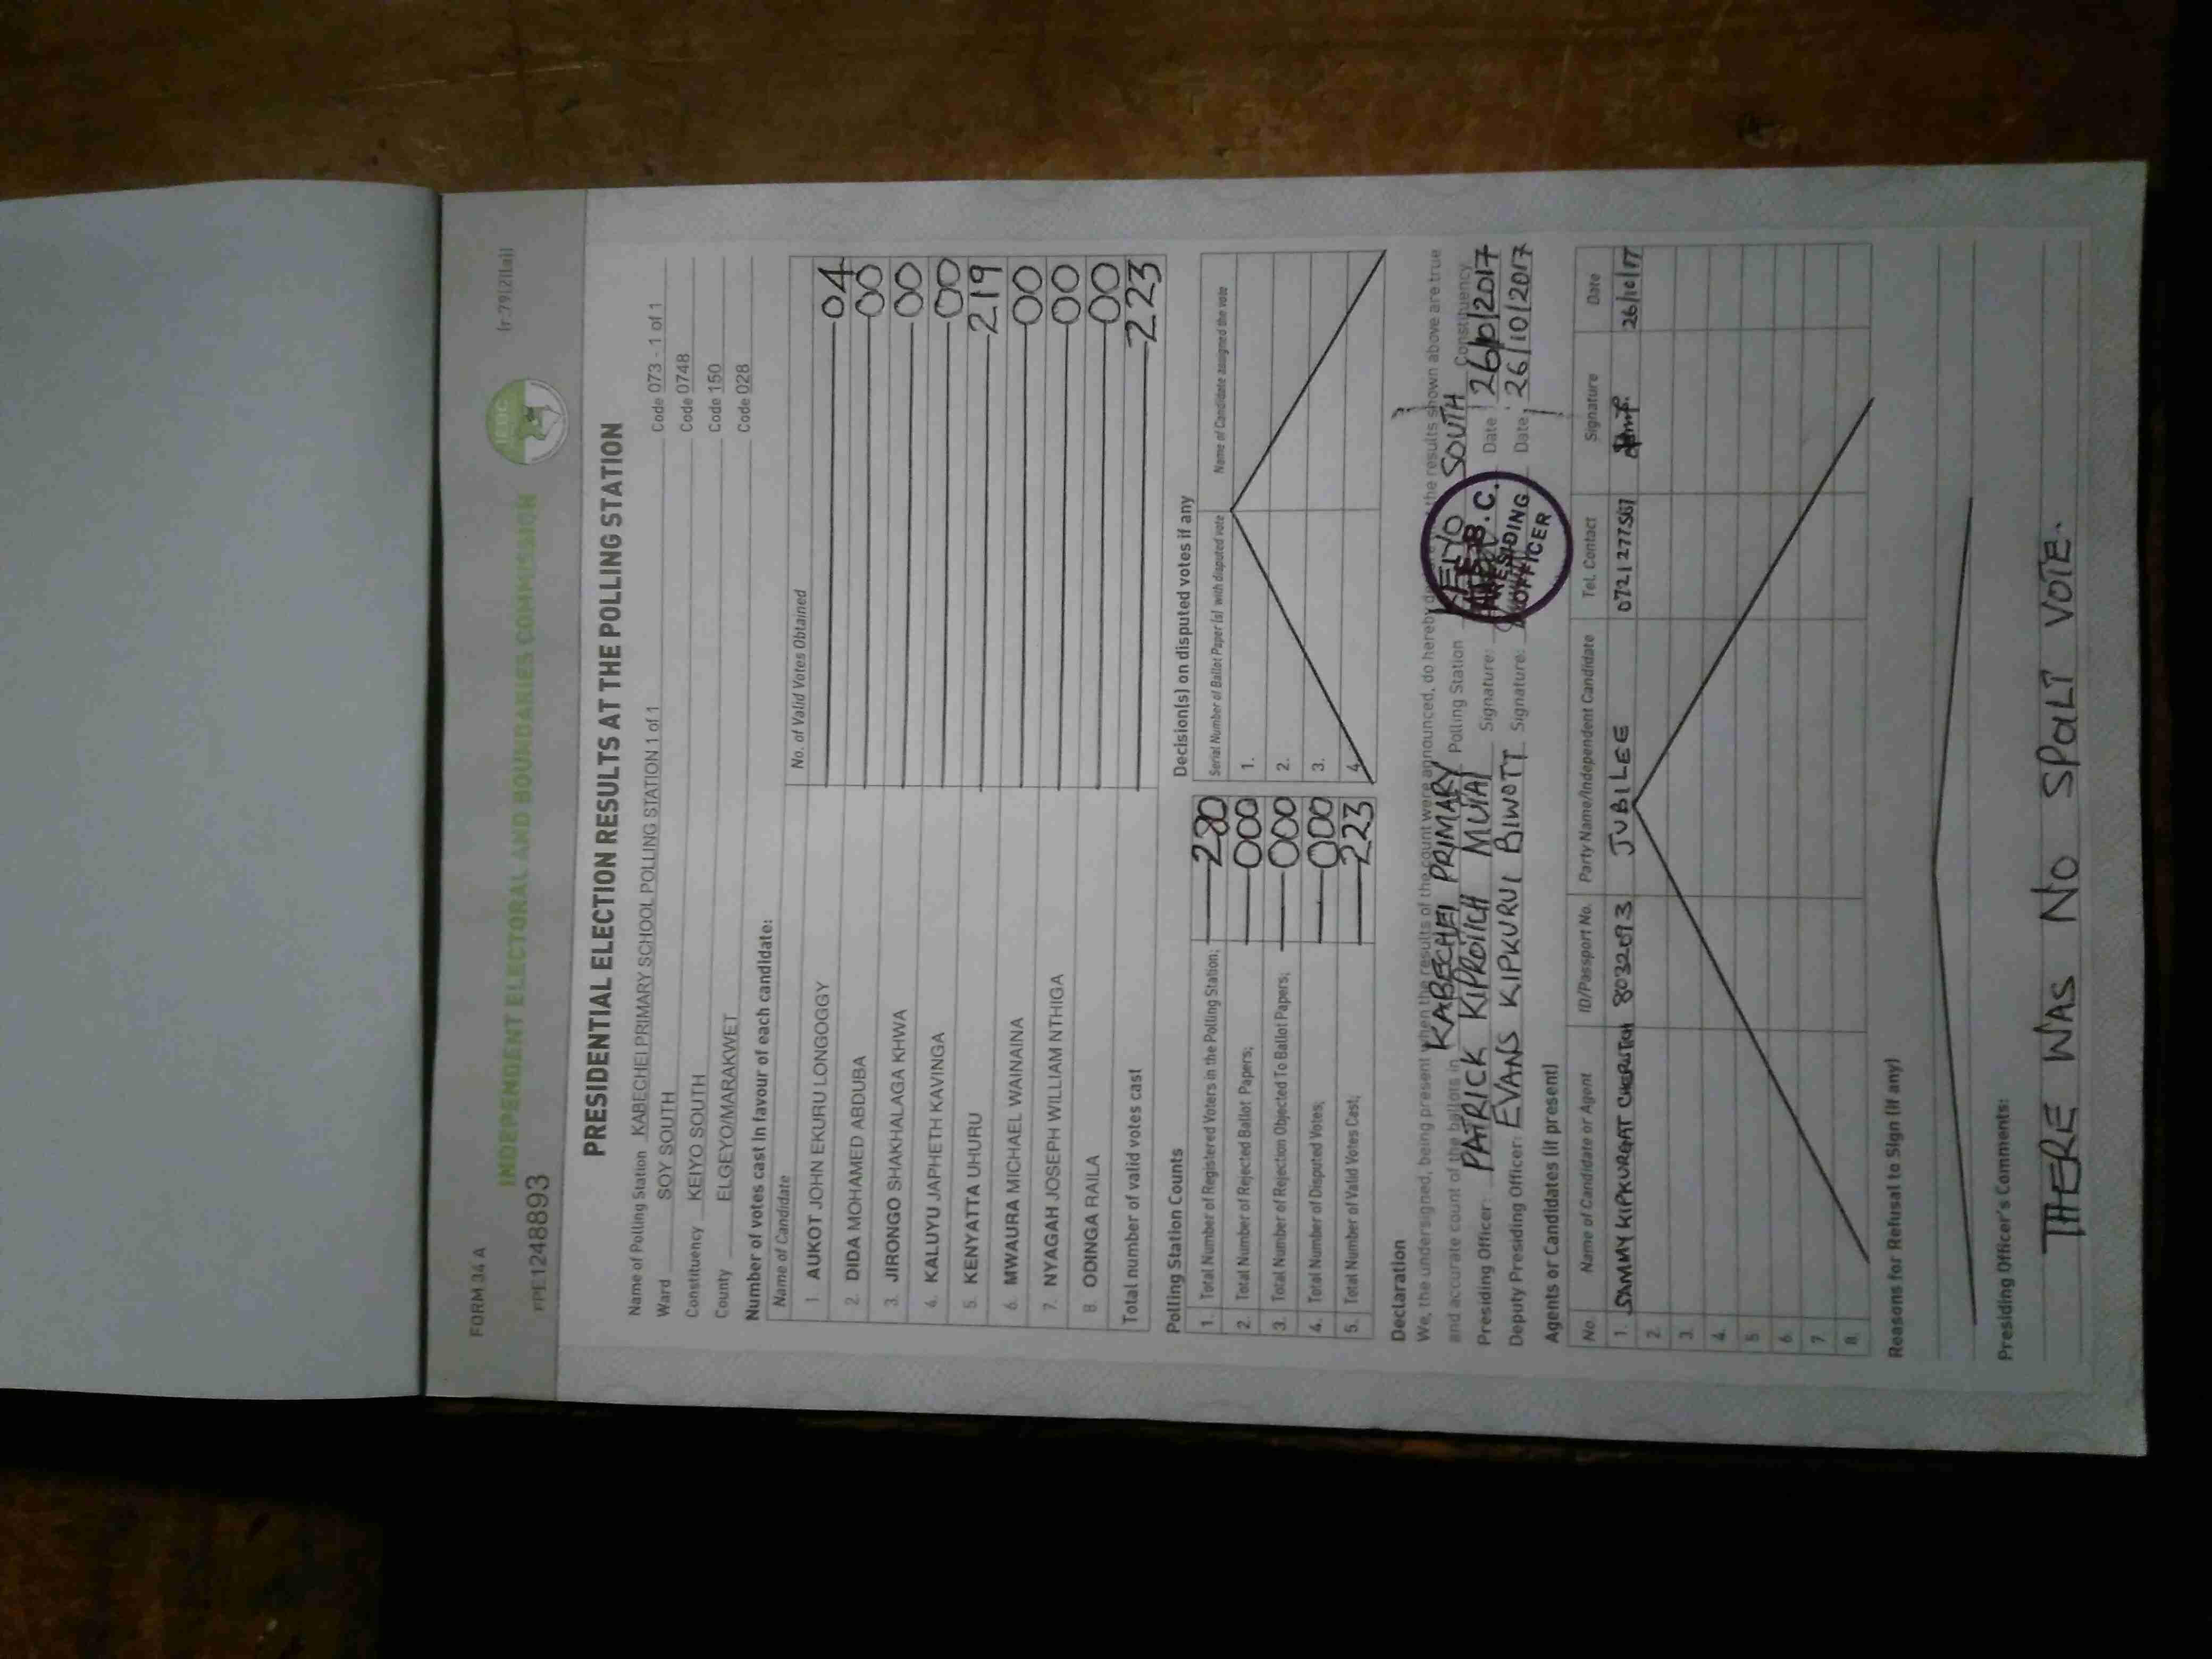 FORM 34 A
(r.79(2)(a))
INDEPENDENT ELECTORAL AND BOUNDARIES COMMISSION
IEBC
1248893
PRESIDENTIAL ELECTION RESULTS AT THE POLLING STATION
Name of Polling Station KABECHEI PRIMARY SCHOOL POLLING STATION 1 of 1 Code 073 - 1 of 1
Ward SOY SOUTH Code 0748
Constituency KEIYO SOUTH Code 150
County ELGEYO/MARAKWET Code 028
Number of votes cast in favour of each candidate:
Name of Candidate No. of Valid Votes Obtained
1. AUKOT JOHN EKURU LONGOGGY 04
2. DIDA MOHAMED ABDUBA 00
3. JIRONGO SHAKHALAGA KHWA 00
4. KALUYU JAPHETH KAVINGA 00
5. KENYATTA UHURU 219
6. MWAURA MICHAEL WAINAINA 00
7. NYAGAH JOSEPH WILLIAM NTHIGA 00
8. ODINGA RAILA 00
Total number of valid votes cast 223
Polling Station Counts
1. Total Number of Registered Voters in the Polling Station; 280
2. Total Number of Rejected Ballot Papers; 000
3. Total Number of Rejection Objected To Ballot Papers; 000
4. Total Number of Disputed Votes; 000
5. Total Number of Valid Votes Cast; 223
Decision(s) on disputed votes if any
Serial Number of Ballot Paper (s) with disputed vote Name of Candidate assigned the vote
1.
2.
3.
4.
Declaration
We, the undersigned, being present when the results of the count were announced, do hereby the results shown above are true
and accurate count of the ballots in KABECHEI PRIMARY Polling Station KEIYO SOUTH Constituency
Presiding Officer: PATRICK KIPROTICH MUTAI Signature: Date 26/10/2017
Deputy Presiding Officer: EVANS KIPKURUI BIWOTT Signature: Date: 26/10/2017
PRESIDING
OFFICER
Agents or Candidates (if present)
No. Name of Candidate or Agent ID/Passport No. Party Name/Independent Candidate Tel. Contact Signature Date
1. SAMMY KIPKURGAT 8032093 JUBILEE 0721277567 26/10/17
2.
3.
4.
5.
6.
7.
8.
Reasons for Refusal to Sign (if any)
Presiding Officer's Comments:
THERE WAS NO SPOLT VOTE.